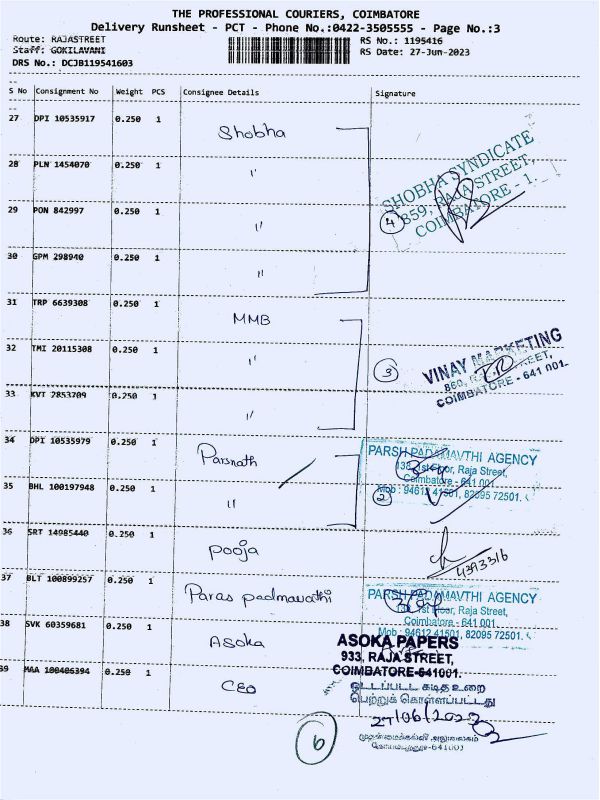 THE PROFESSIONAL COURIERS, COIMBATORE
Delivery Runsheet - PCT - Phone No.:0422-3505555 - Page No.:3
Route: RAJASTREET RS No.: 1195416
Staff: GOKILAVANI RS Date: 27-Jun-2023
DRS No.: DCJB119541603
S No Consignment No Weight PCS Consignee Details Signature
27 DPI 10535917 0.250 1 Shobha
28 PLN 1454070 0.250 1 "
SHOBHA SYNDICATE
859, RAJA STREET,
COIMBATORE - 1.
29 PON 842997 0.250 1 "
4
30 GPM 298940 0.250 1 "
31 TRP 6639308 0.250 1 MMB
32 TMI 20115308 0.250 1 "
3
VINAY MARKETING
860, STREET,
COIMBATORE - 641 001.
33 KVT 2853709 0.250 1 "
34 DPI 10535979 0.250 1 Parsnath
PARSH PADAMAVTHI AGENCY
138, 1st Floor, Raja Street,
Coimbatore - 641 001.
Mob : 94612 41501, 82095 72501.
35 BHL 100197948 0.250 1 "
2
36 SRT 14985440 0.250 1 pooja
4393316
37 BLT 100899257 0.250 1 Paras padmavathi
PARSH PADAMAVTHI AGENCY
138, 1st Floor, Raja Street,
Coimbatore - 641 001.
Mob : 94612 41501, 82095 72501.
38 SVK 60359681 0.250 1 ASOKA
ASOKA PAPERS
933, RAJA STREET,
COIMBATORE-641001.
39 MAA 100406394 0.250 1 CEO
ஒட்டப்பட்ட கடித உறை
பெற்றுக் கொள்ளப்பட்டது
27/06/2023
முதன்மைக்கல்வி அலுவலகம்
கோயமுத்தூர்-641001
6